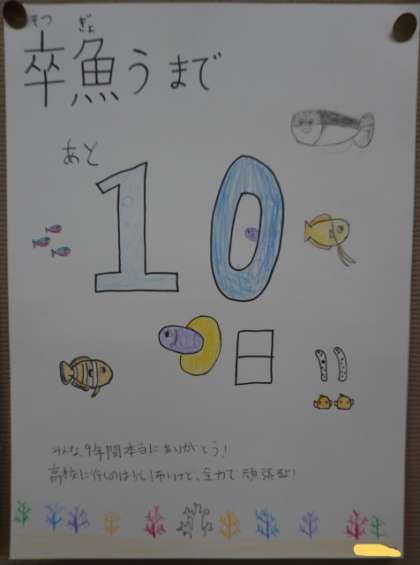 そつ ぎょ
卒魚うまで
あと
10
日!!
みんな、9年間本当にありがとう!
高校に行くのは少し怖いけど、全力で頑張ろう!